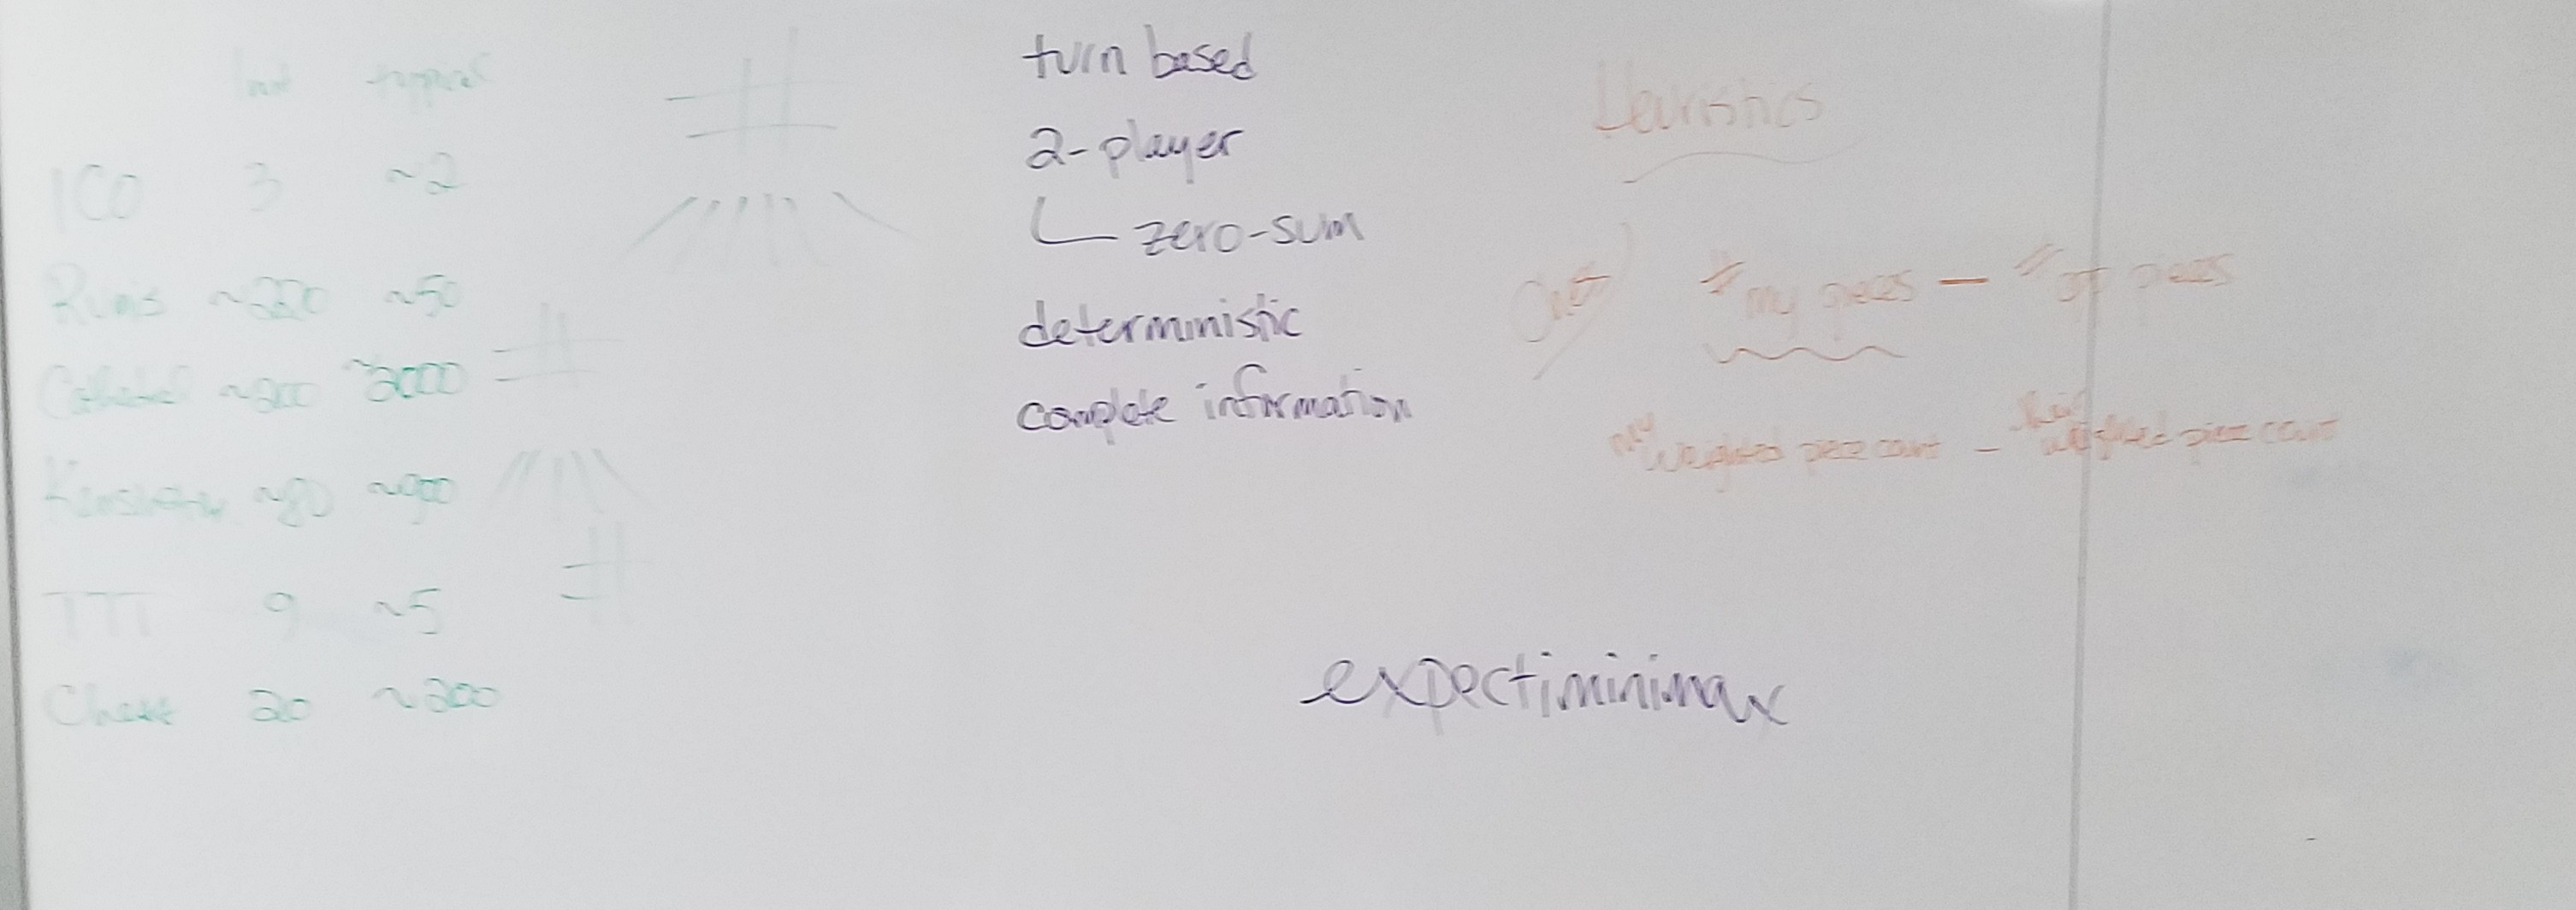 init typical
ICO 3 ~2
Rumis ~220 ~50
Cathedral ~200 ~2000
~80 ~900
TTT 9 ~5
Chess 20 ~200
turn based
2-player
zero-sum
deterministic
complete information
Heuristics
# my pieces — # opp pieces
my weighted piece count — their weighted piece count
expectiminimax